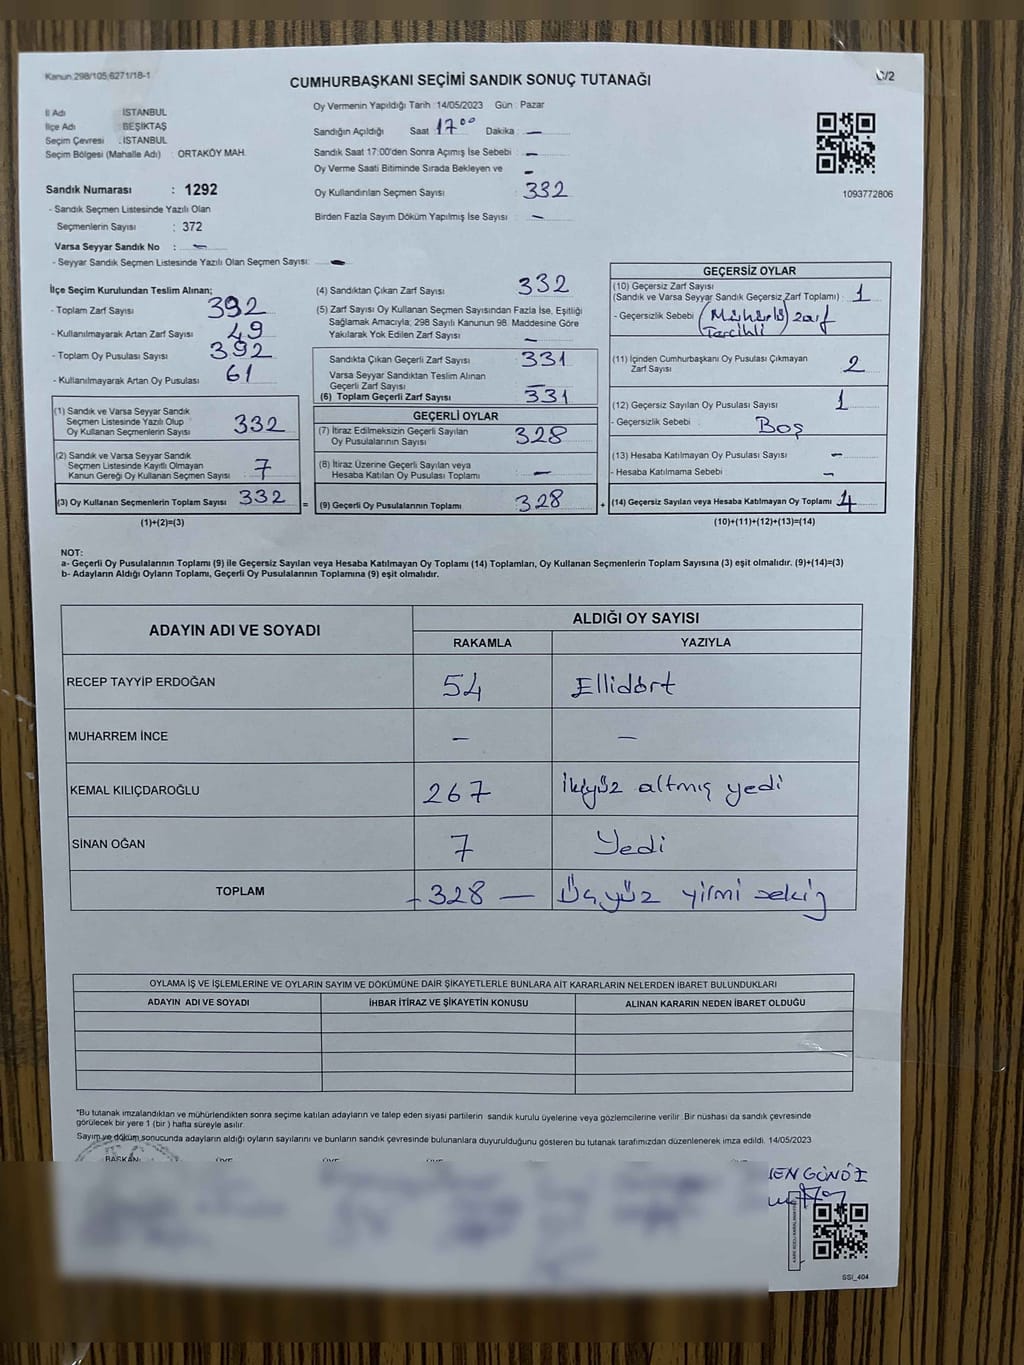 Kanun.298/105;6271/18-1
CUMHURBAŞKANI SEÇİMİ SANDIK SONUÇ TUTANAĞI
/2
İl Adı : İSTANBUL
İlçe Adı : BEŞİKTAŞ
Seçim Çevresi : İSTANBUL
Seçim Bölgesi (Mahalle Adı) : ORTAKÖY MAH.
Sandık Numarası : 1292
- Sandık Seçmen Listesinde Yazılı Olan
Seçmenlerin Sayısı : 372
Varsa Seyyar Sandık No : —
- Seyyar Sandık Seçmen Listesinde Yazılı Olan Seçmen Sayısı: —
Oy Vermenin Yapıldığı Tarih :14/05/2023 Gün : Pazar
Sandığın Açıldığı Saat 17⁰⁰ Dakika : —
Sandık Saat 17:00'den Sonra Açımış İse Sebebi : —
Oy Verme Saati Bitiminde Sırada Bekleyen ve —
Oy Kullandırılan Seçmen Sayısı : 332
Birden Fazla Sayım Döküm Yapılmış İse Sayısı : —
1093772806
İlçe Seçim Kurulundan Teslim Alınan;
- Toplam Zarf Sayısı 392
- Kullanılmayarak Artan Zarf Sayısı : 49
- Toplam Oy Pusulası Sayısı 392
- Kullanılmayarak Artan Oy Pusulası : 61
(1) Sandık ve Varsa Seyyar Sandık
Seçmen Listesinde Yazılı Olup
Oy Kullanan Seçmenlerin Sayısı : 332
(2) Sandık ve Varsa Seyyar Sandık
Seçmen Listesinde Kayıtlı Olmayan
Kanun Gereği Oy Kullanan Seçmen Sayısı : 7
(3) Oy Kullanan Seçmenlerin Toplam Sayısı : 332
(1)+(2)=(3)
(4) Sandıktan Çıkan Zarf Sayısı : 332
(5) Zarf Sayısı Oy Kullanan Seçmen Sayısından Fazla İse, Eşitliği
Sağlamak Amacıyla; 298 Sayılı Kanunun 98. Maddesine Göre
Yakılarak Yok Edilen Zarf Sayısı : —
Sandıkta Çıkan Geçerli Zarf Sayısı : 331
Varsa Seyyar Sandıktan Teslim Alınan
Geçerli Zarf Sayısı : —
(6) Toplam Geçerli Zarf Sayısı : 331
GEÇERLİ OYLAR
(7) İtiraz Edilmeksizin Geçerli Sayılan
Oy Pusulalarının Sayısı : 328
(8) İtiraz Üzerine Geçerli Sayılan veya
Hesaba Katılan Oy Pusulası Toplamı : —
= (9) Geçerli Oy Pusulalarının Toplamı : 328 +
GEÇERSİZ OYLAR
(10) Geçersiz Zarf Sayısı
(Sandık ve Varsa Seyyar Sandık Geçersiz Zarf Toplamı) : 1
- Geçersizlik Sebebi : (Mühürlü) zarf
Tercihli
(11) İçinden Cumhurbaşkanı Oy Pusulası Çıkmayan
Zarf Sayısı : 2
(12) Geçersiz Sayılan Oy Pusulası Sayısı : 1
- Geçersizlik Sebebi : Boş
(13) Hesaba Katılmayan Oy Pusulası Sayısı : —
- Hesaba Katılmama Sebebi : —
(14) Geçersiz Sayılan veya Hesaba Katılmayan Oy Toplamı : 4
(10)+(11)+(12)+(13)=(14)
NOT:
a- Geçerli Oy Pusulalarının Toplamı (9) ile Geçersiz Sayılan veya Hesaba Katılmayan Oy Toplamı (14) Toplamları, Oy Kullanan Seçmenlerin Toplam Sayısına (3) eşit olmalıdır. (9)+(14)=(3)
b- Adayların Aldığı Oyların Toplamı, Geçerli Oy Pusulalarının Toplamına (9) eşit olmalıdır.
ADAYIN ADI VE SOYADI
ALDIĞI OY SAYISI
RAKAMLA YAZIYLA
RECEP TAYYİP ERDOĞAN 54 Ellidört
MUHARREM İNCE — —
KEMAL KILIÇDAROĞLU 267 İkiyüz altmış yedi
SİNAN OĞAN 7 Yedi
TOPLAM — 328 — Üçyüz yirmi sekiz
OYLAMA İŞ VE İŞLEMLERİNE VE OYLARIN SAYIM VE DÖKÜMÜNE DAİR ŞİKAYETLERLE BUNLARA AİT KARARLARIN NELERDEN İBARET BULUNDUKLARI
ADAYIN ADI VE SOYADI İHBAR İTİRAZ VE ŞİKAYETİN KONUSU ALINAN KARARIN NEDEN İBARET OLDUĞU
*Bu tutanak imzalandıktan ve mühürlendikten sonra seçime katılan adayların ve talep eden siyasi partilerin sandık kurulu üyelerine veya gözlemcilerine verilir. Bir nüshası da sandık çevresinde
görülecek bir yere 1 (bir ) hafta süreyle asılır.
Sayım ve döküm sonucunda adayların aldığı oyların sayılarını ve bunların sandık çevresinde bulunanlara duyurulduğunu gösteren bu tutanak tarafımızdan düzenlenerek imza edildi. 14/05/2023
BAŞKAN
SSİ_404